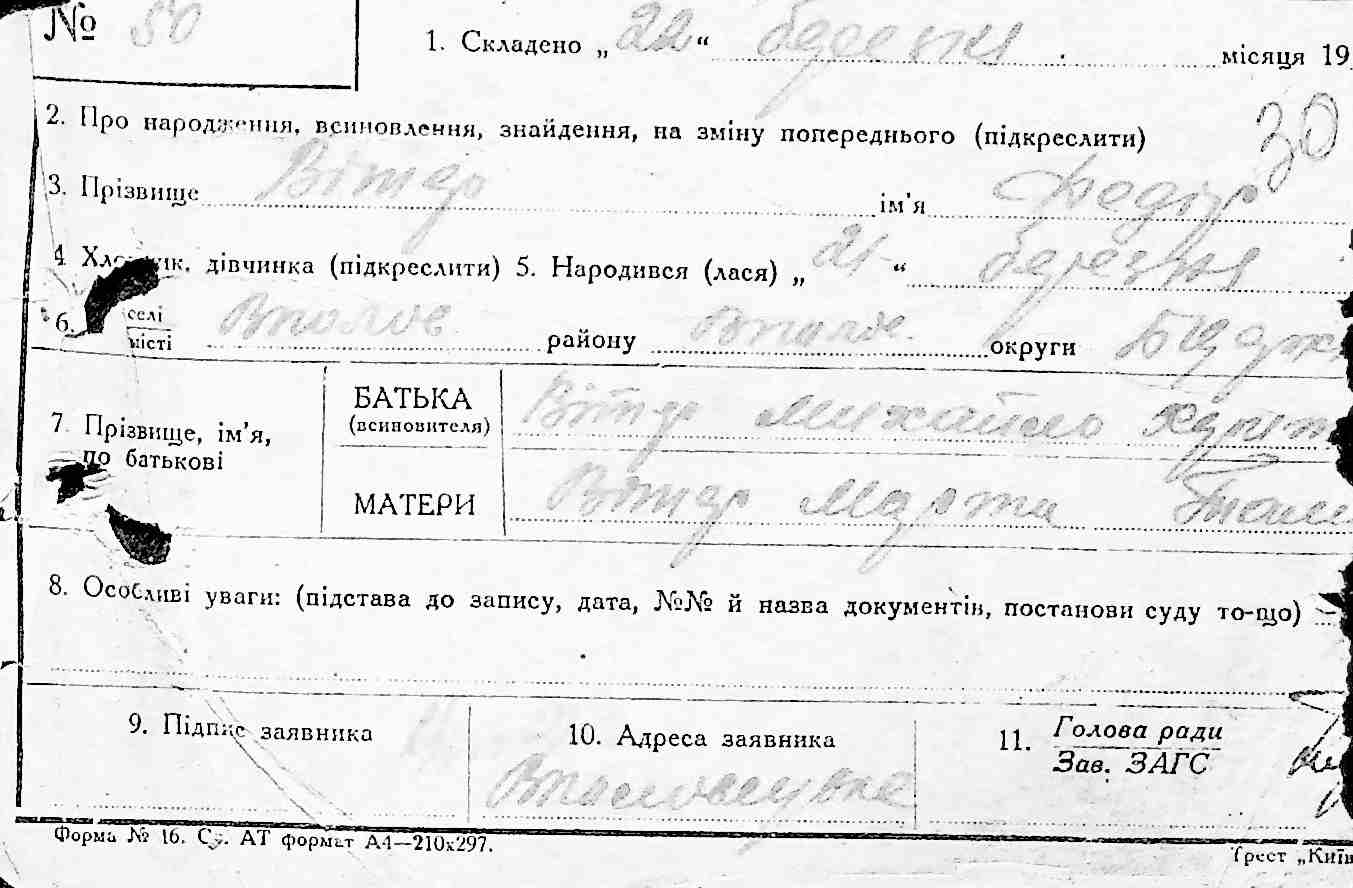 № 50
1. Складено „22“ березня місяця 19
30
2. Про народження, всиновлення, знайдення, на зміну попереднього (підкреслити)
3. Прізвище Вітер ім’я Федір
4 Хлопчик, дівчинка (підкреслити) 5. Народився (лася) „21“ березня
6. селі
місті
району округи
7. Прізвище, ім’я,
по батькові
БАТЬКА
(всиновителя)
Вітер Михайло
МАТЕРИ
Вітер Марта
8. Особливі уваги: (підстава до запису, дата, №№ й назва документів, постанови суду то-що)
9. Підпис заявника
10. Адреса заявника
11. Голова ради
Зав. ЗАГС
Форма № 16. Ст. АТ формат А4—210х297.
Трест „Київ